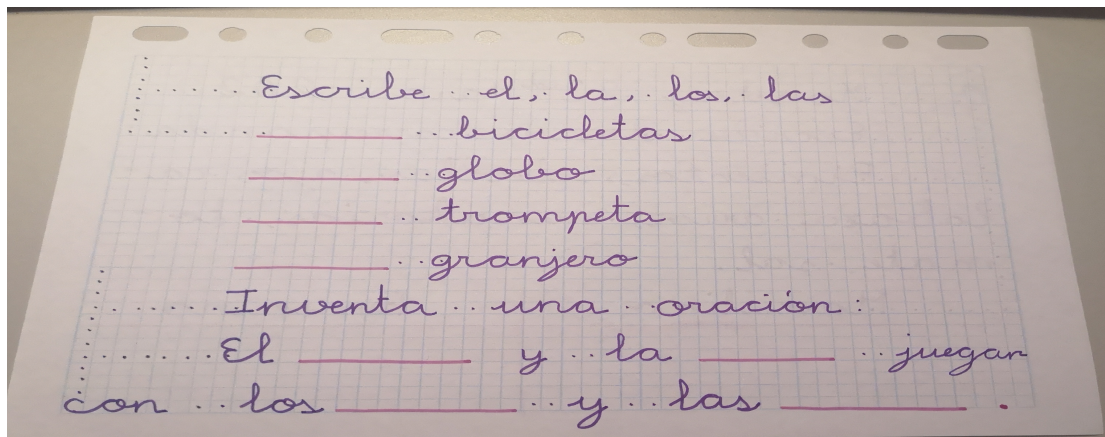 Escribe el, la, los, las
______ bicicletas
______ globo
______ trompeta
______ granjero
Inventa una oración:
El ______ y la ______ juegan
con los ______ y las ______ .